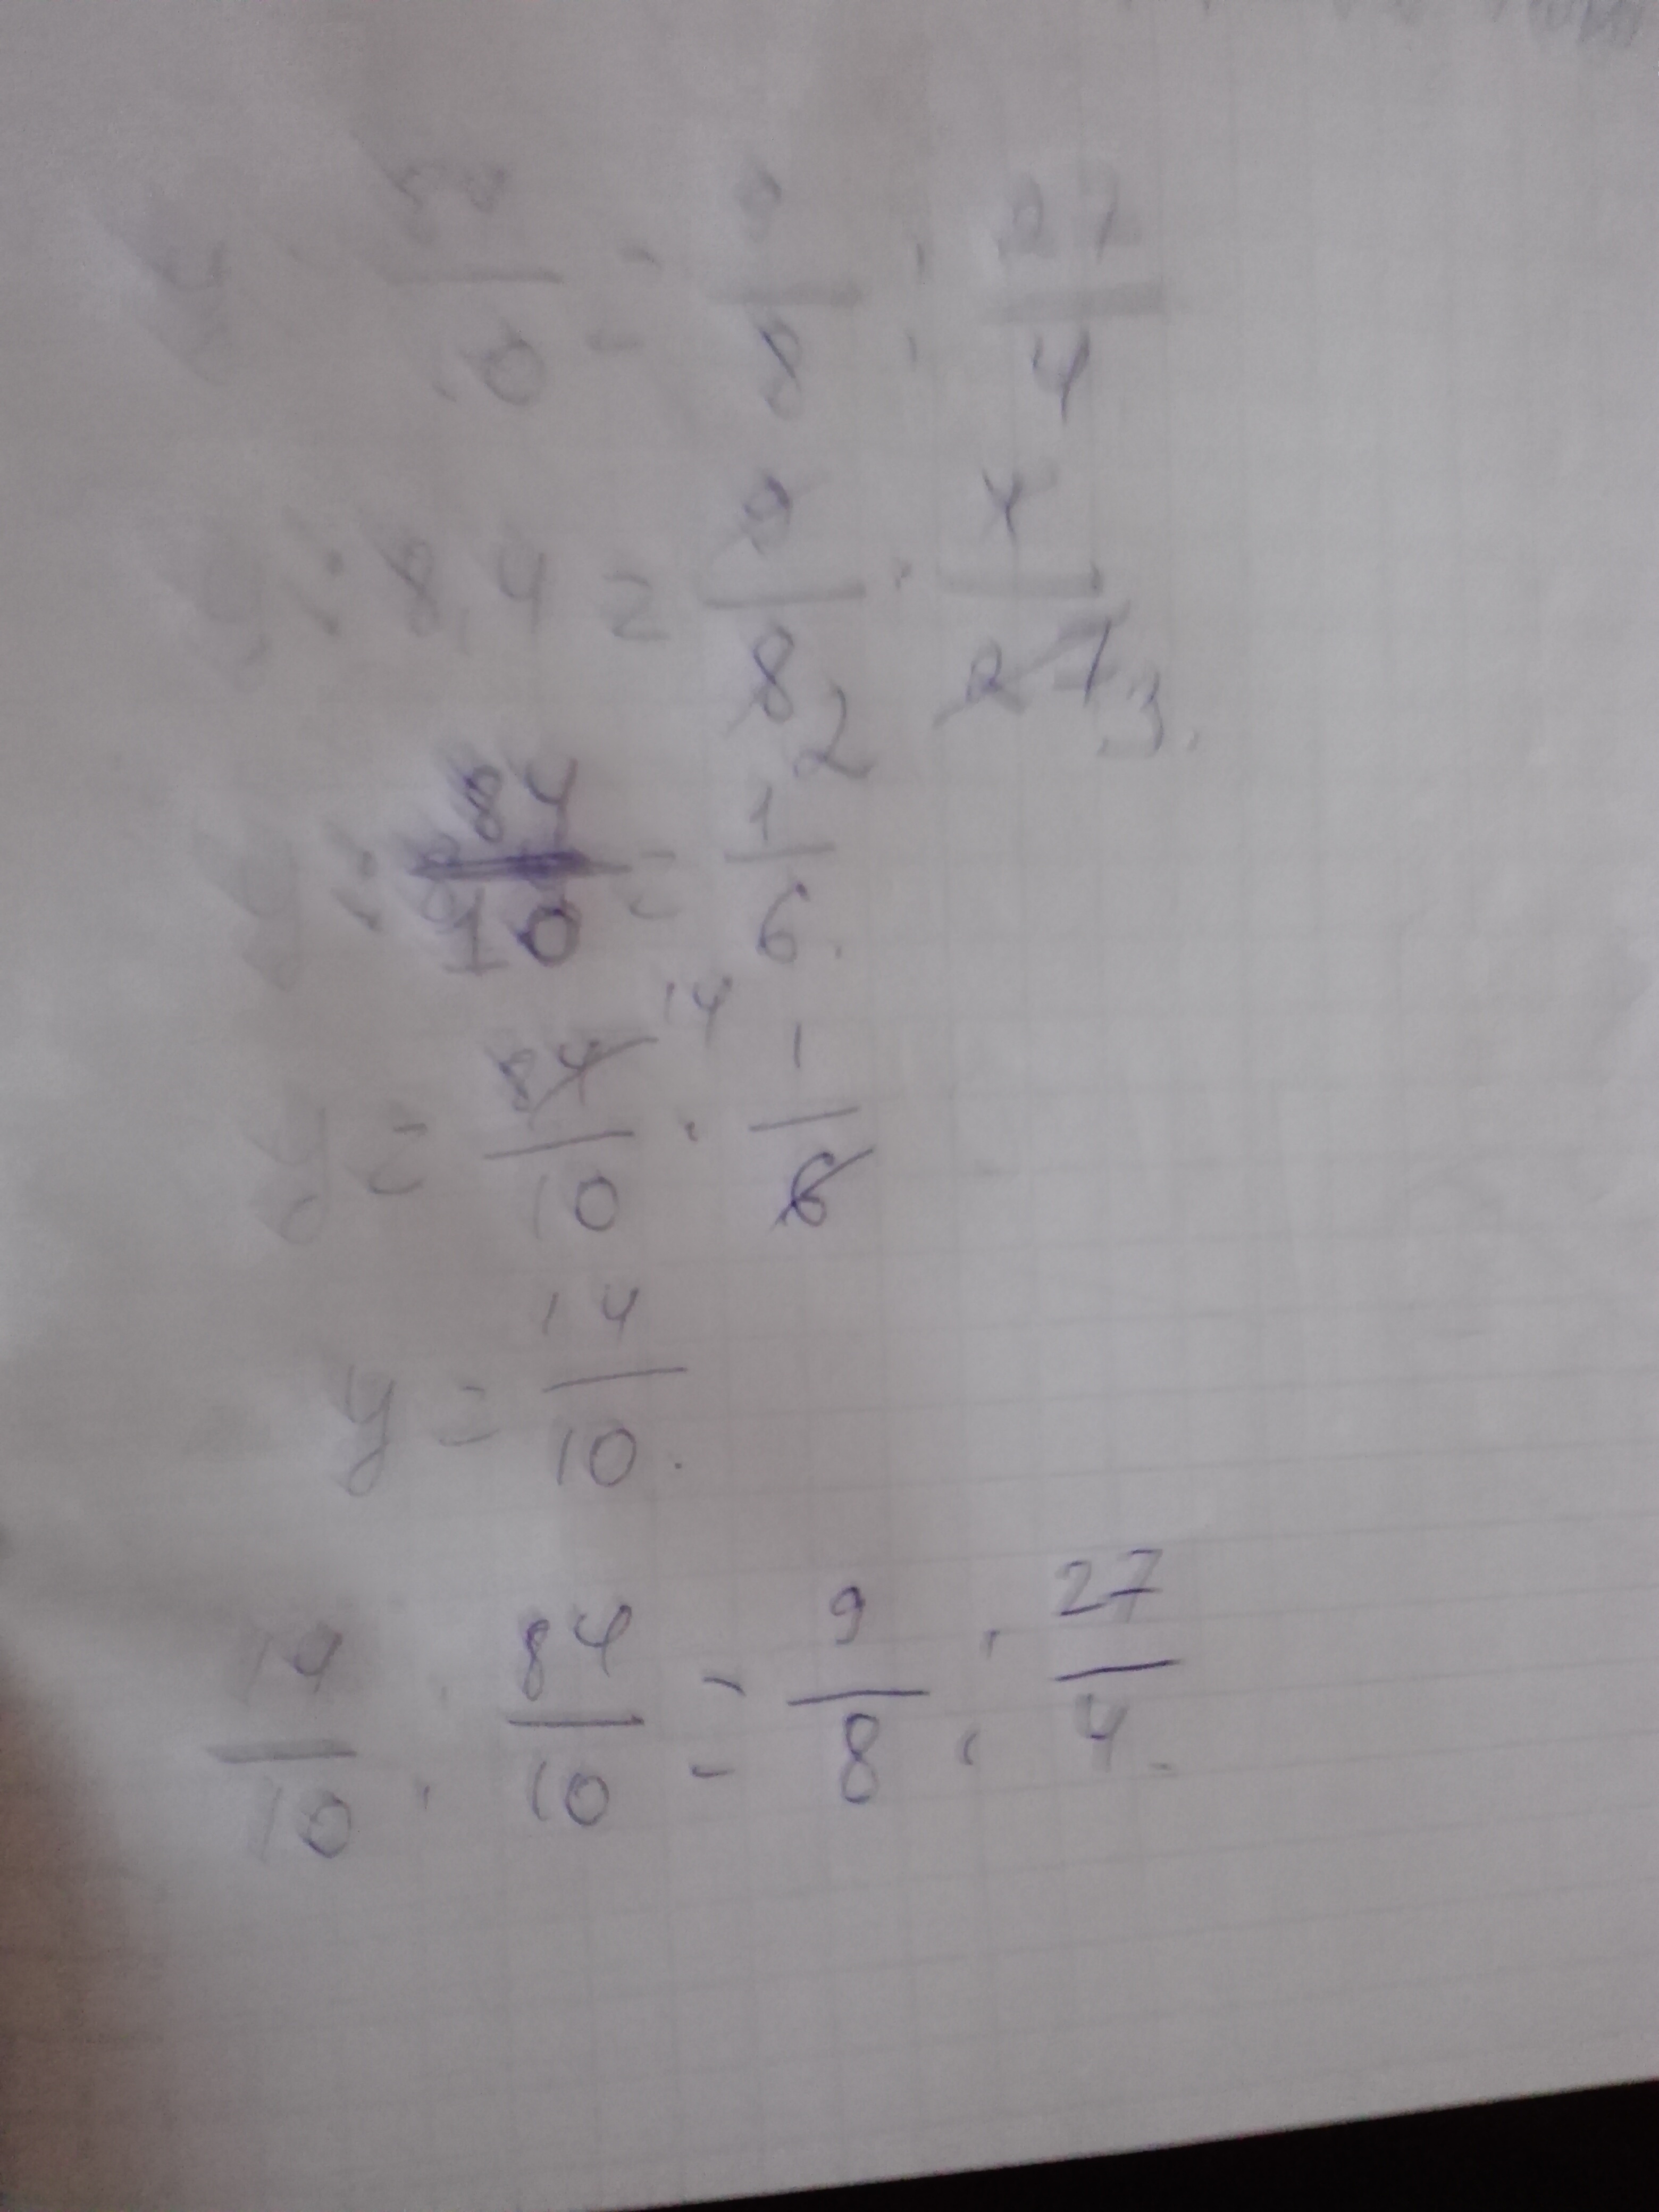 y : 84/10 = 9/8 : 27/4
y : 8,4 = 9/8 2 · 4/27 3.
y : 84/10 = 1/6.
y = 84/10 14 · 1/6
y = 14/10.
14/10 : 84/10 = 9/8 : 27/4.